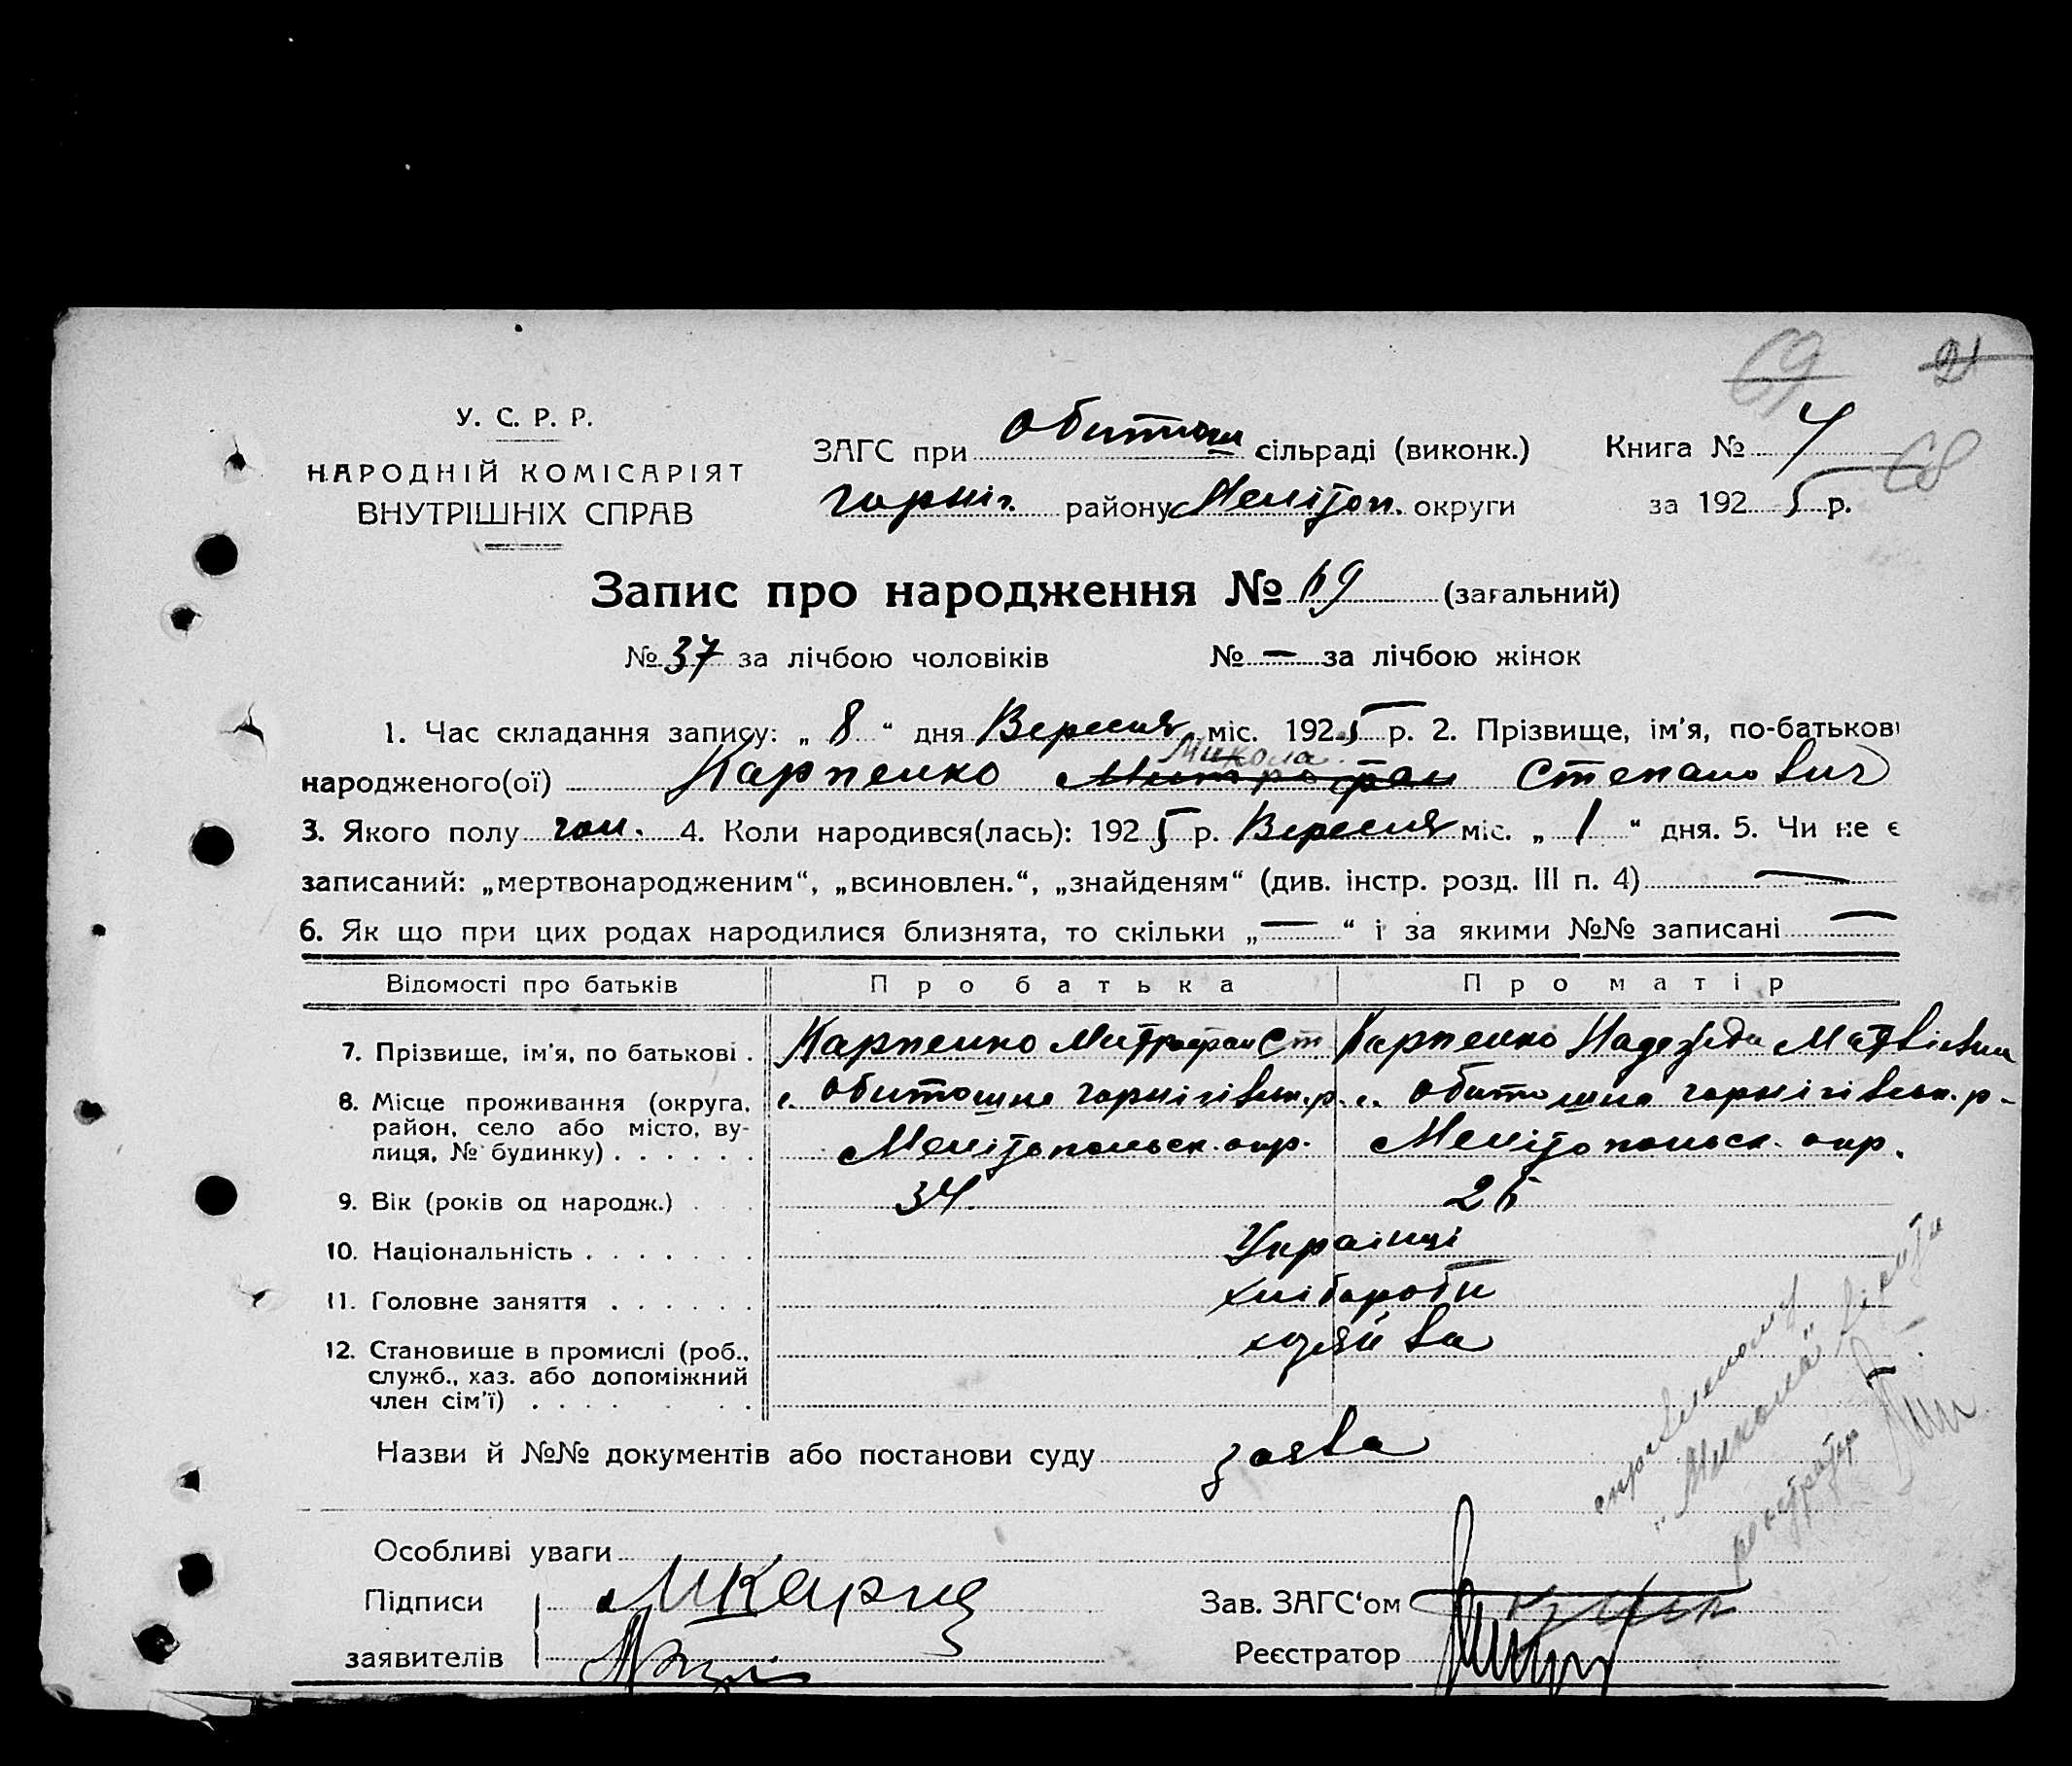 69 21
У. С. Р. Р.
НАРОДНІЙ КОМІСАРІЯТ
ВНУТРІШНІХ СПРАВ
ЗАГС при Обиточн сільраді (виконк.) Книга № 4
68
Черніг. району Мелітоп. округи за 1925 р.
Запис про народження № 69 (загальний)
№ 37 за лічбою чоловіків № — за лічбою жінок
1. Час складання запису: „ 8 “ дня Вересня міс. 1925 р. 2. Прізвище, ім'я, по-батькові
Микола
народженого(ої) Карпенко Митрофан Степанович
3. Якого полу чол. 4. Коли народився(лась): 1925 р. Вересня міс. „ 1 “ дня. 5. Чи не є
записаний: „мертвонародженим“, „всиновлен.“, „знайденям“ (див. інстр. розд. III п. 4) —
6. Як що при цих родах народилися близнята, то скільки „ — “ і за якими №№ записані —
Відомості про батьків Про батька Про матір
7. Прізвище, ім'я, по батькові . Карпенко Митрофан Ст Карпенко Надежда Матвієвна
8. Місце проживання (округа, с. Обиточна чернігівськ. р. с. Обиточна чернігівськ. р.
район, село або місто, ву-
лиця, № будинку) . . . . . . Мелітопольск. окр. Мелітопольск. окр.
9. Вік (років од народж.) . . . 34 26
10. Національність . . . . . . . Українці
11. Головне заняття . . . . . . хлібороби
12. Становище в промислі (роб., хозяйва
служб., хаз. або допоміжний
член сім'ї) . . . . . . . .
Назви й №№ документів або постанови суду заява
Особливі уваги
Підписи
заявителів
Зав. ЗАГС'ом
Реєстратор
справленому
„Микола“